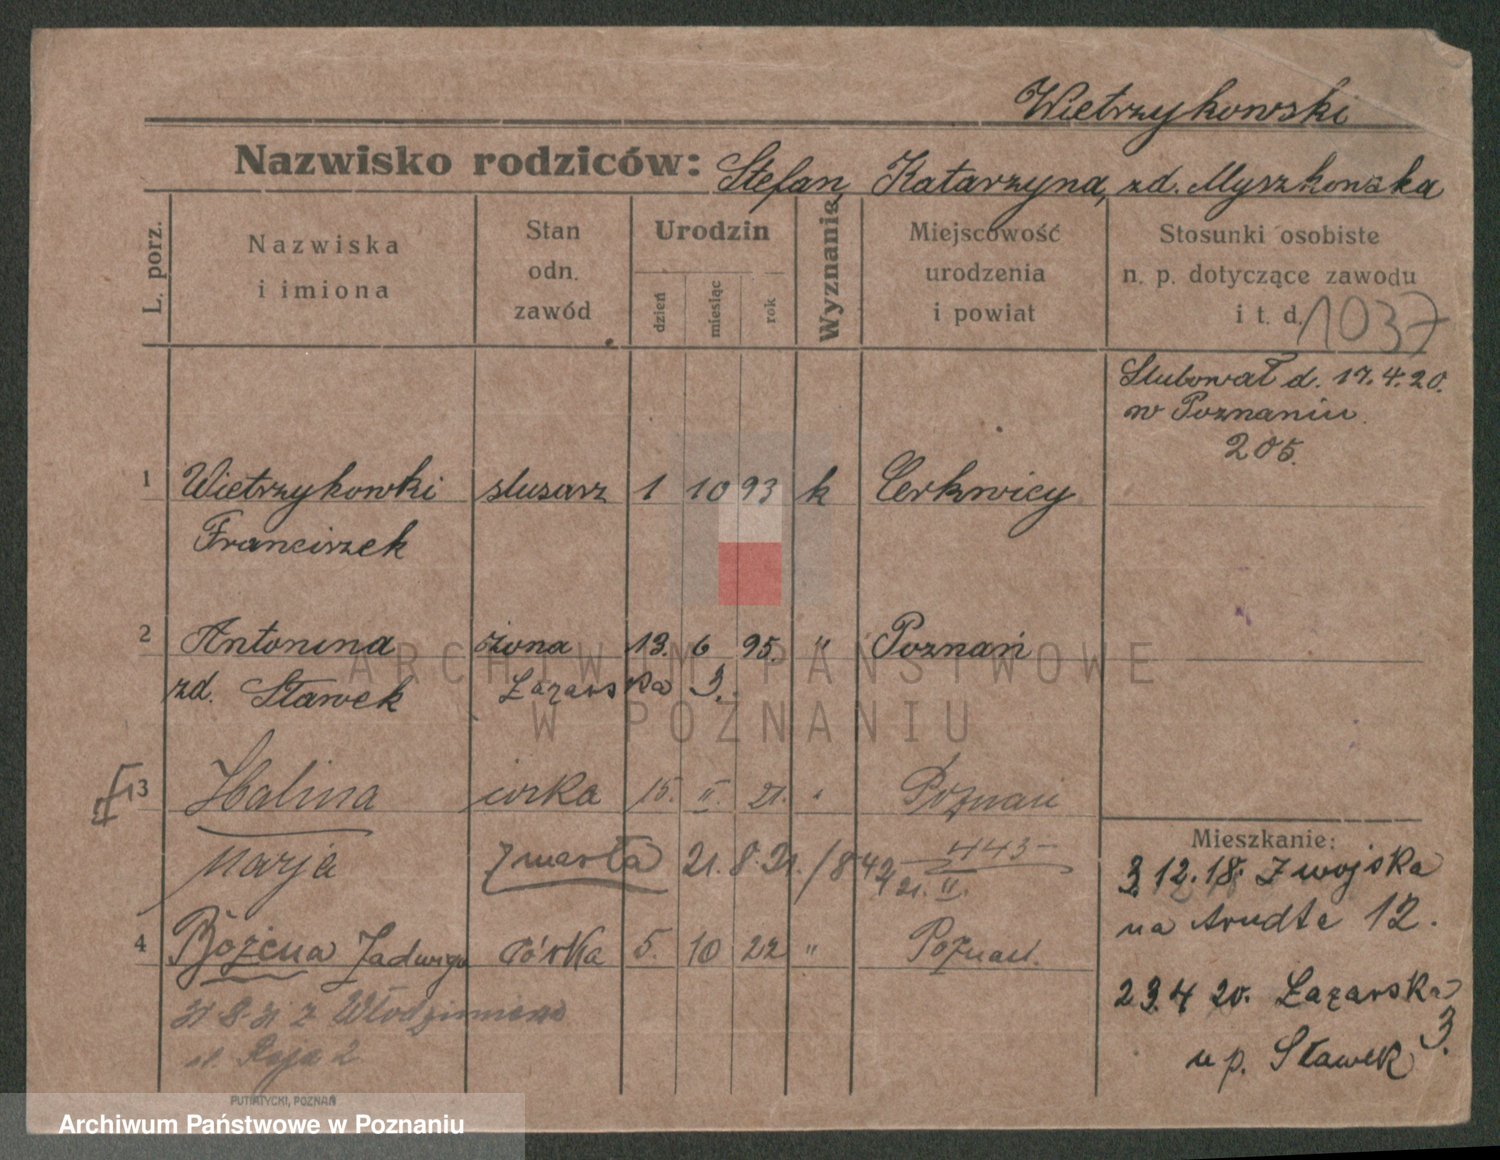 Wietrzykowski
Nazwisko rodziców: Stefan, Katarzyna, zd. Myszkowska
L. porz.
Nazwiska i imiona
Stan odn. zawód
Urodzin
dzień miesiąc rok
Wyznanie
Miejscowość urodzenia i powiat
Stosunki osobiste n. p. dotyczące zawodu i t. d.
1037
Slubował d. 17.4.20.
w Poznaniu
205.
1 Wietrzykowki slusarz 1 10 93 k Cerkwicy
Franciszek
2 Antonina żona 13. 6 95. " Poznań
zd. Stawek Łazarska 3.
3 Halina córka 15. II. 21. Poznań
Marja zmarła 21. 8. 21. /8424 443
21. II.
4 Bożena Jadwiga córka 5. 10 22 " Poznań.
31 8 31 z Włodzimierz
ul. Reja 2
Mieszkanie:
3.12.18. Z wojska
na Arndta 12.
23.4 20. Łazarska 3.
u p. Sławek
PUTIATYCKI, POZNAŃ
ARCHIWUM PAŃSTWOWE
W POZNANIU
Archiwum Państwowe w Poznaniu